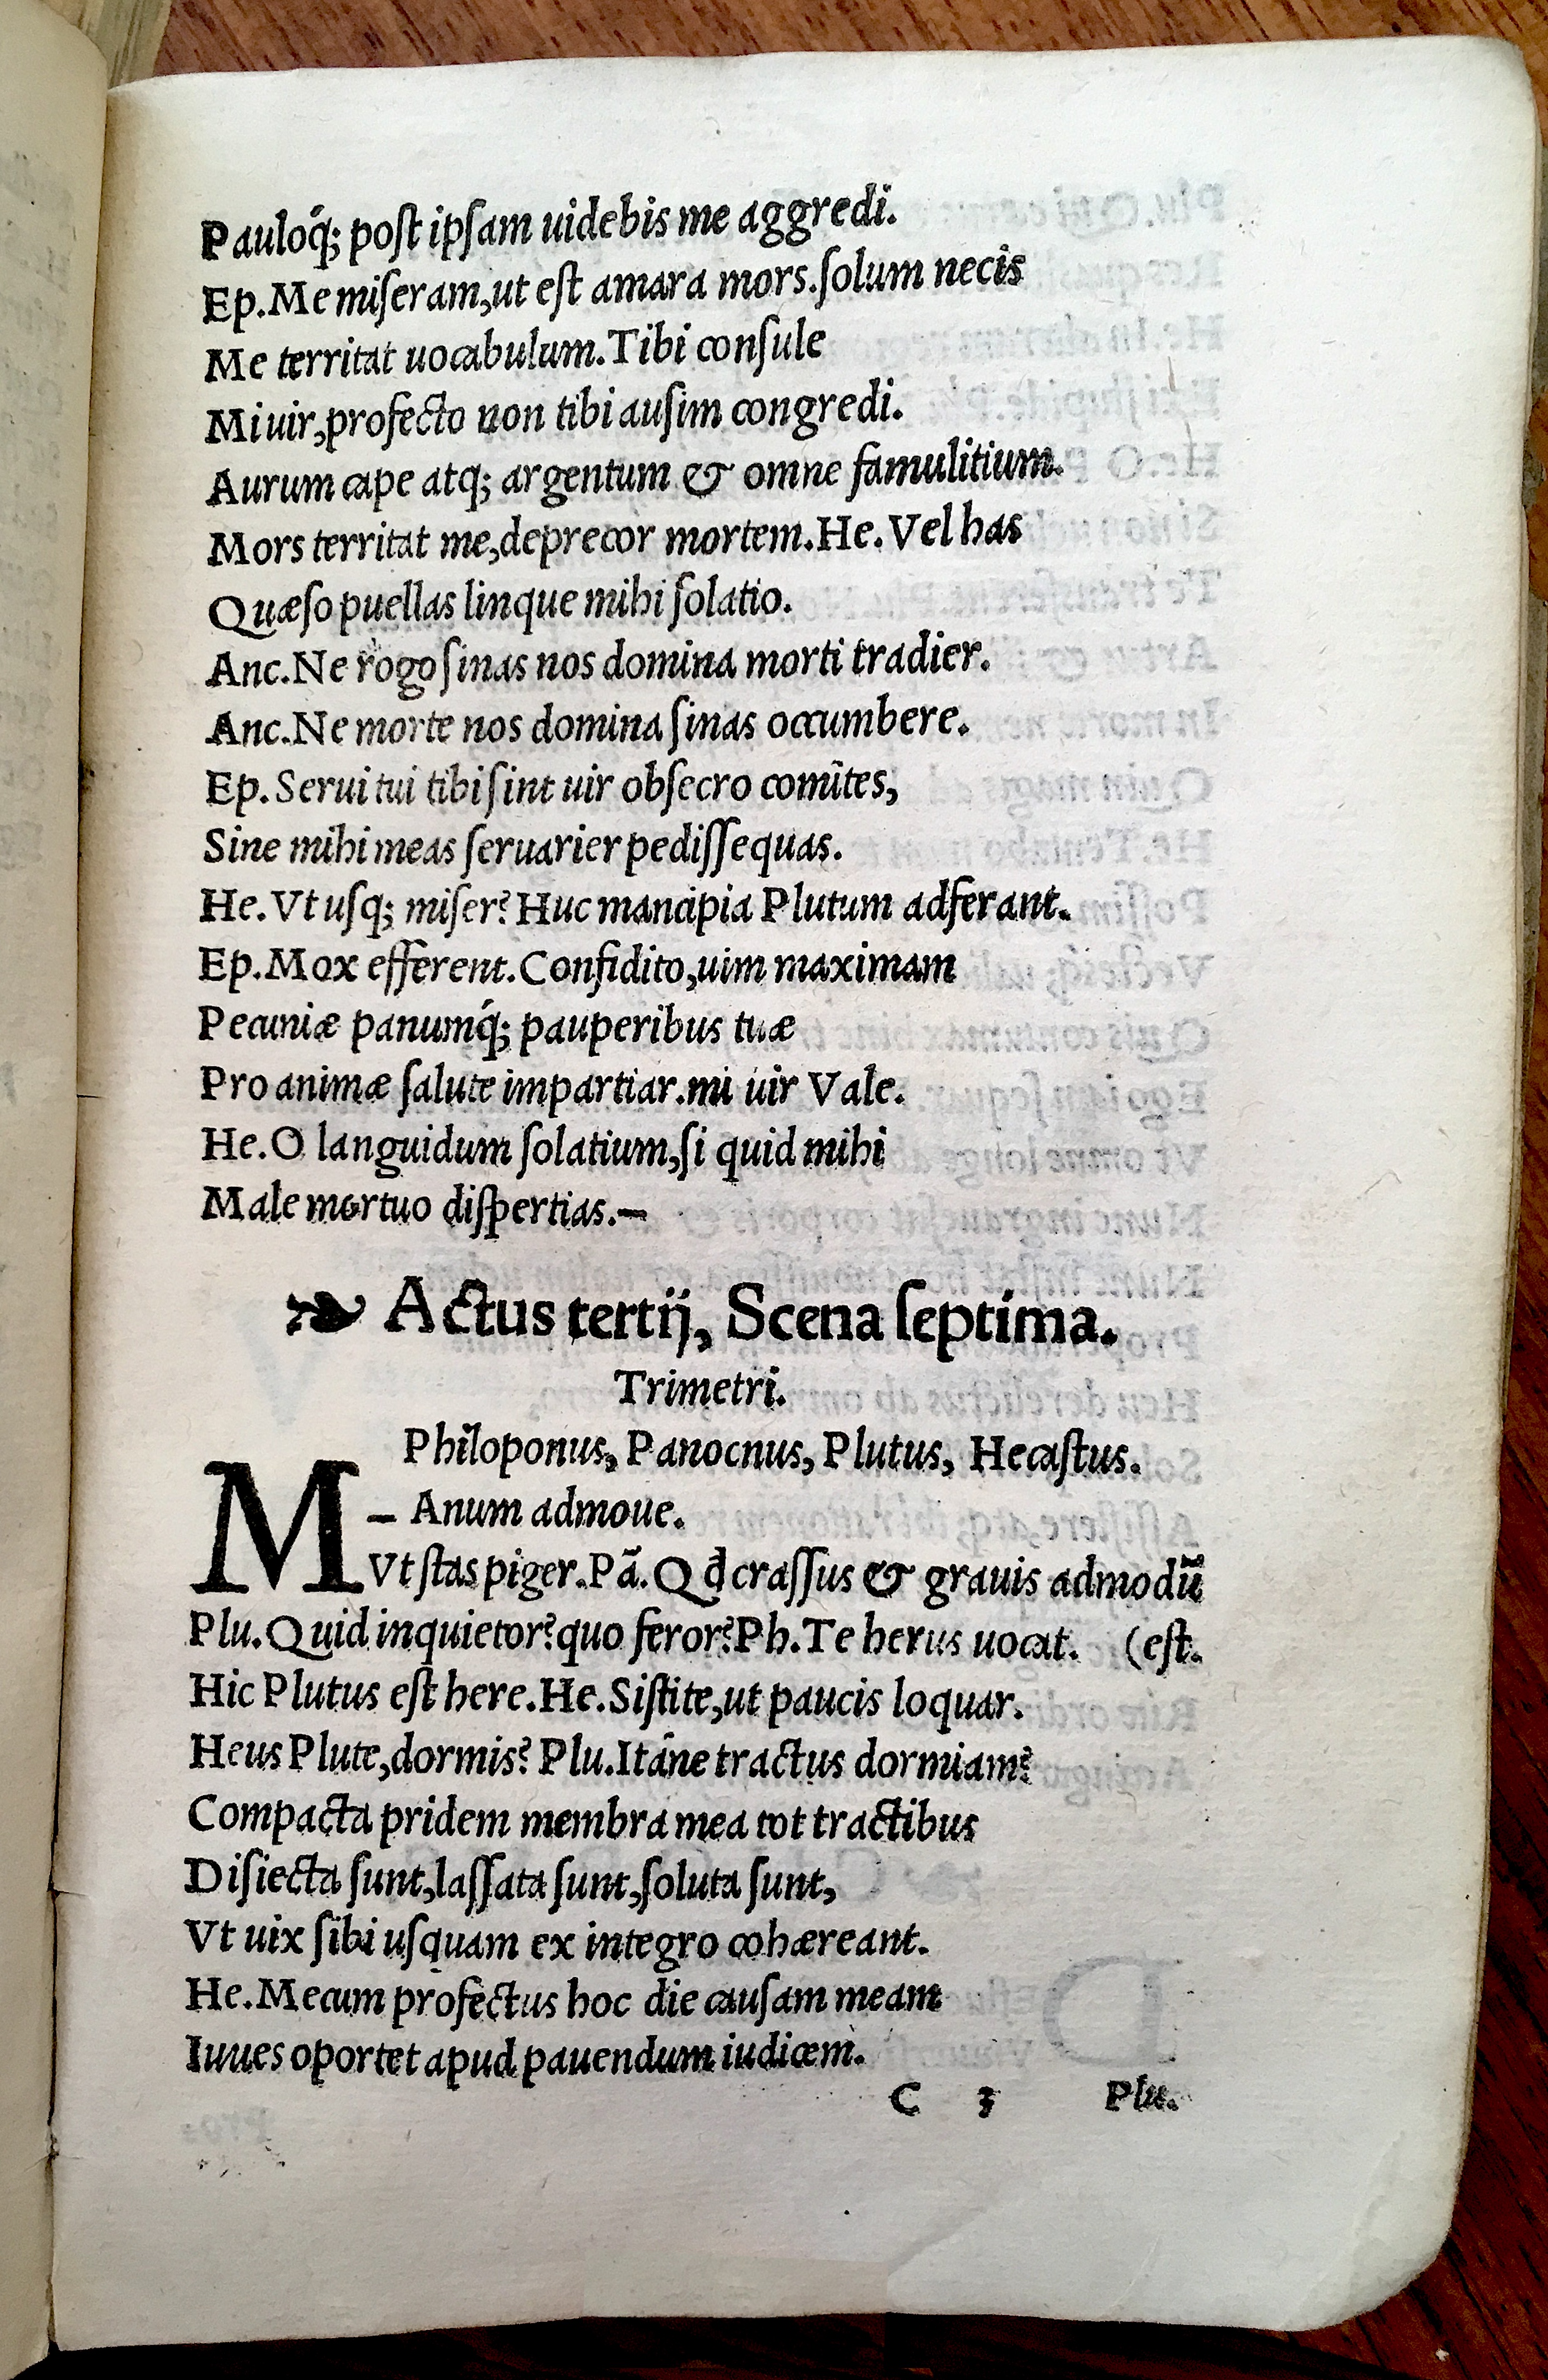 Pauloq́; poſt ipſam uidebis me aggredi.
Ep. Me miſeram, ut eſt amara mors. ſolum necis
Me territat uocabulum. Tibi conſule
Mi uir, profecto non tibi auſim congredi.
Aurum cape atq; argentum & omne famulitium.
Mors territat me, deprecor mortem. He. Vel has
Quæſo puellas linque mihi ſolatio.
Anc. Ne rogo ſinas nos domina morti tradier.
Anc. Ne morte nos domina ſinas occumbere.
Ep. Serui tui tibi ſint uir obſecro comites,
Sine mihi meas ſeruarier pediſſequas.
He. Vt uſq; miſer? Huc mancipia Plutum adferant.
Ep. Mox efferent. Confidito, uim maximam
Pecuniæ panumq́; pauperibus tuæ
Pro animæ ſalute impartiar. mi uir Vale.
He. O languidum ſolatium, ſi quid mihi
Male mortuo diſpertias. —
❧ Actus tertij, Scena ſeptima.
Trimetri.
Philoponus, Panocnus, Plutus, Hecaſtus.
M— Anum admoue.
Vt ſtas piger. Pā. Qd craſſus & grauis admodū
Plu. Quid inquietor? quo feror? Ph. Te herus uocat. (eſt.
Hic Plutus eſt here. He. Siſtite, ut paucis loquar.
Heus Plute, dormis? Plu. Itáne tractus dormiam?
Compacta pridem membra mea tot tractibus
Diſiecta ſunt, laſſata ſunt, ſoluta ſunt,
Vt uix ſibi uſquam ex integro cohæreant.
He. Mecum profectus hoc die cauſam meam
Iuues oportet apud pauendum iudicem.
C 3 Plu.